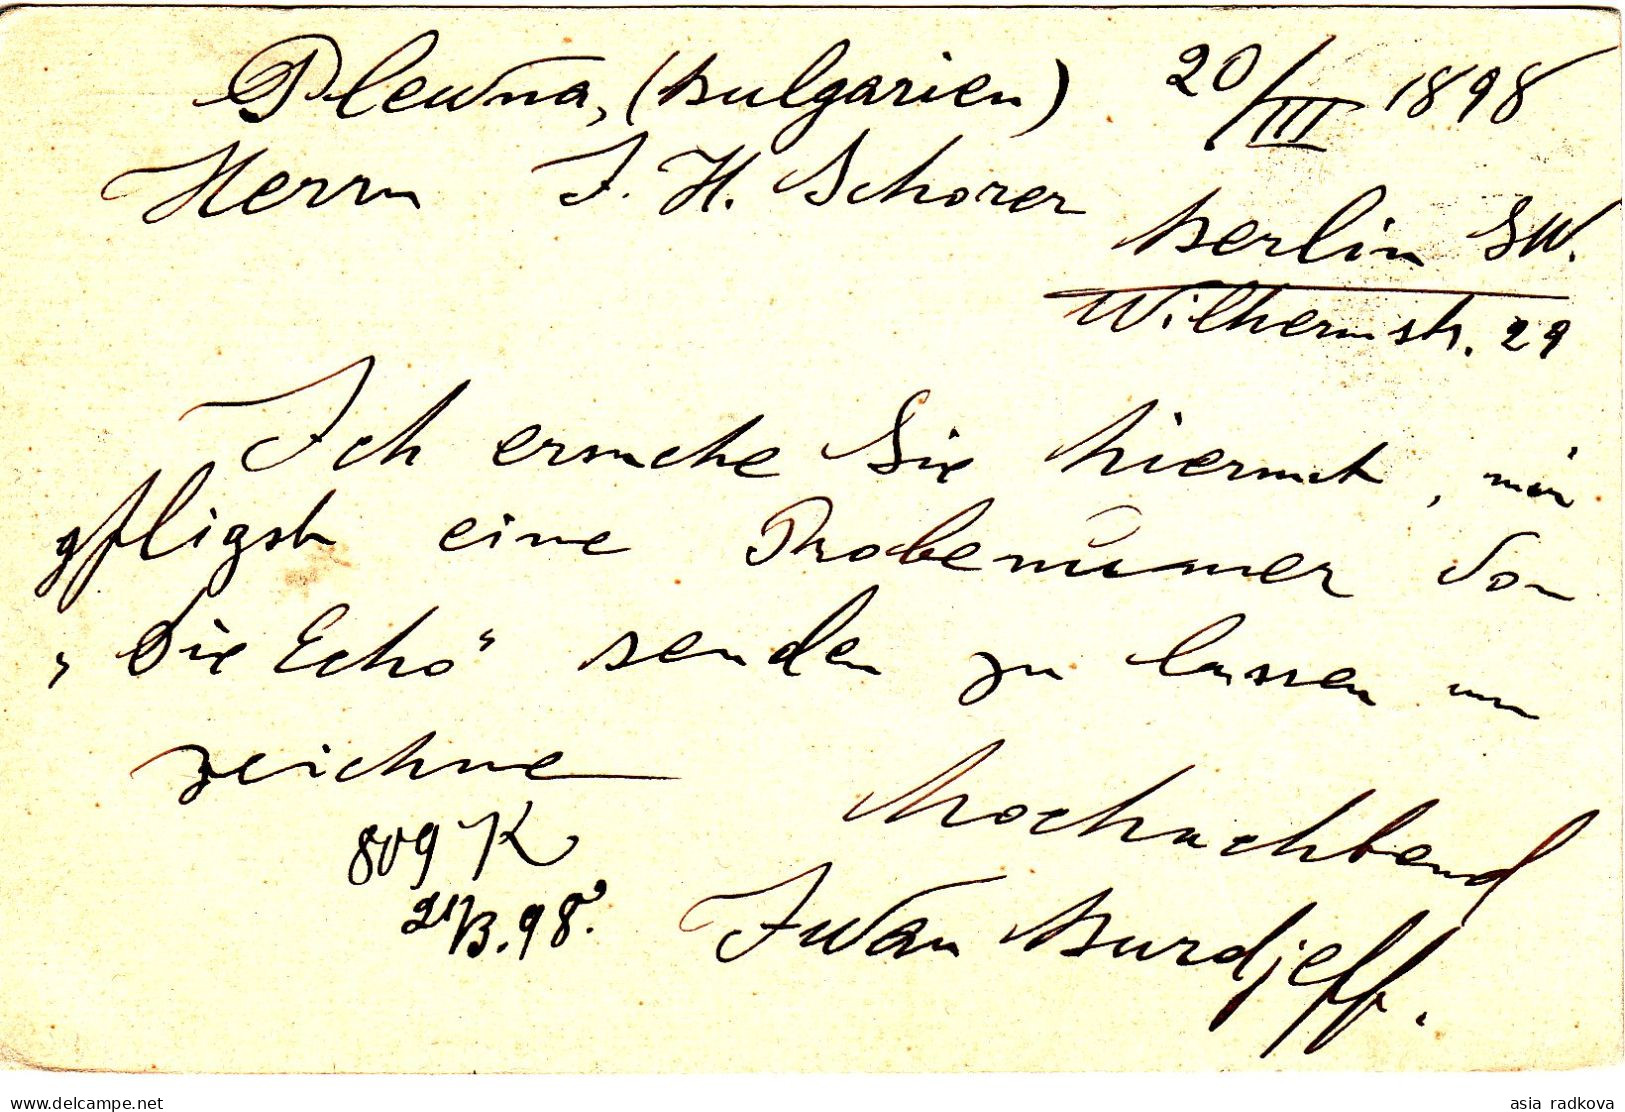 Plewna, (Bulgarien) 20/III 1898
Herrn J. H. Schorer
Berlin SW.
Wilhelmstr. 29
Ich ersuche Sie hiermit, mir
gfligst eine Probenum̅er von
„Die Echo“ senden zu lassen un
zeichne
Hochachtend
Iwan Burdjeff.
809 K
21/3.98.
www.delcampe.net
asia radkova